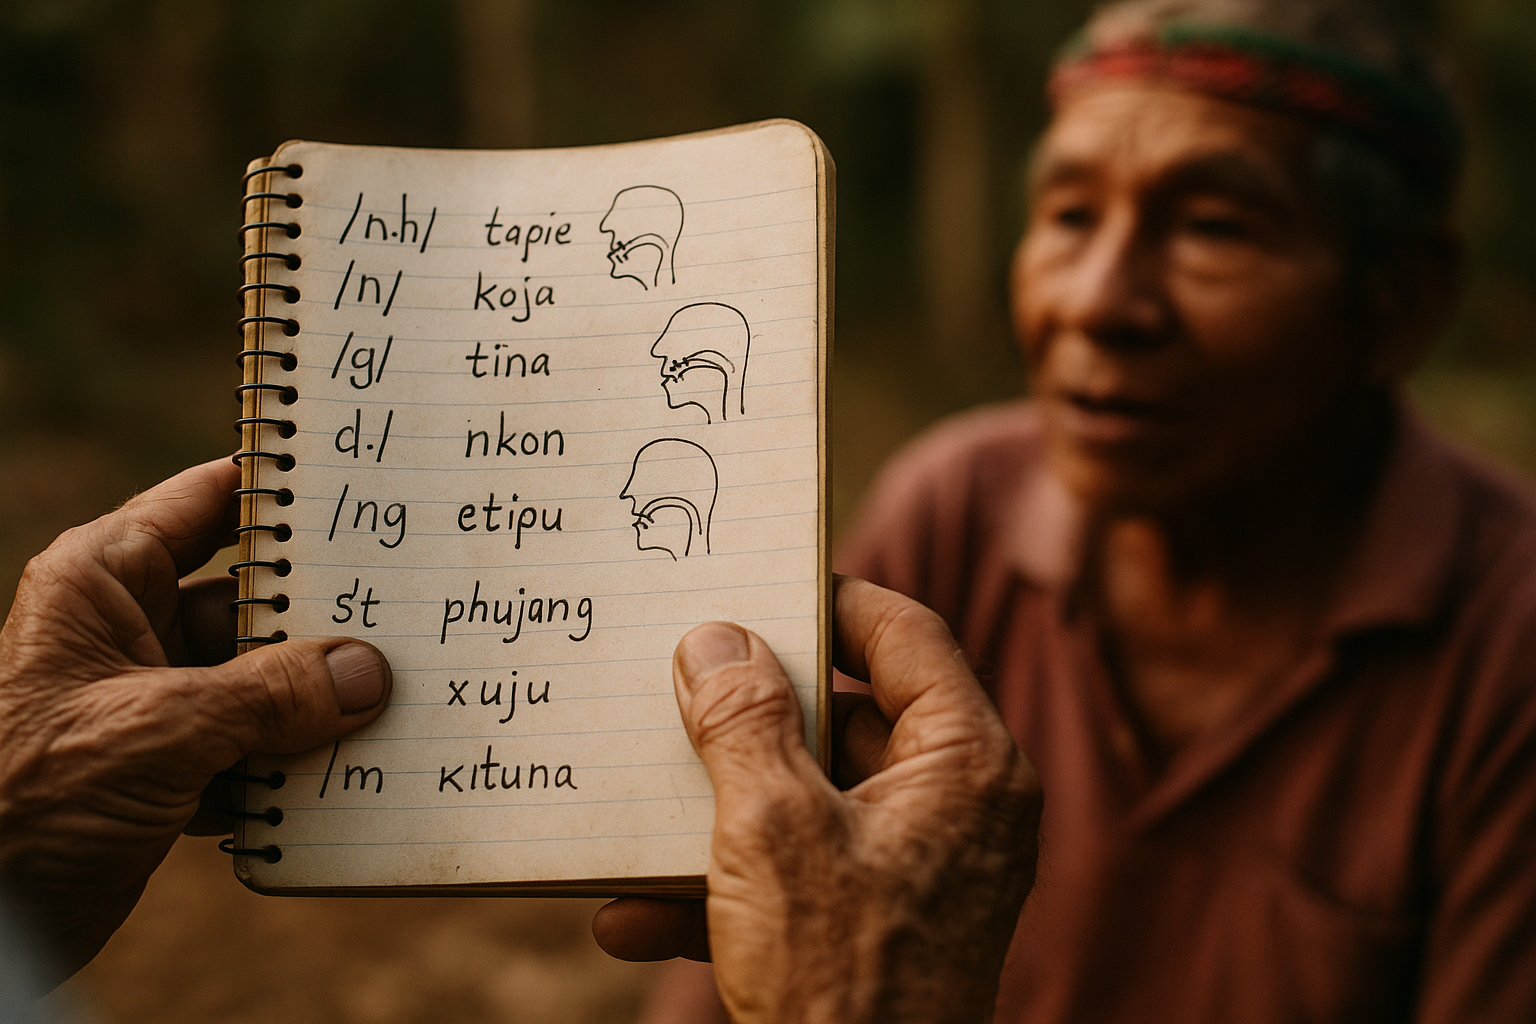 /n.h/ tapie
/n/ koja
/g/ tïna
d./ nkon
/ng etipu
śt phujang
xuju
/m kituna